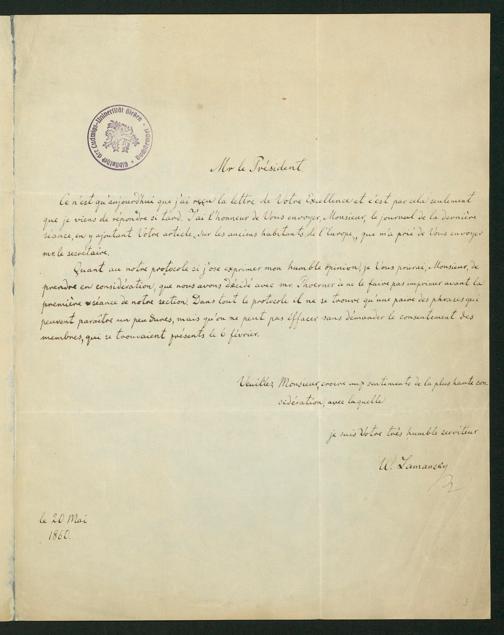 Mr le Président
Ce n'est qu'aujourd'hui que j'ai reçu la lettre de Votre Excellence et c'est par cela seulement
que je viens de répondre si tard. J'ai l'honneur de Vous envoyer, Monsieur, le journal de la dernière
séance, en y ajoutant Votre article, sur les anciens habitants de l'Europe, que m'a prié de Vous envoyer
mr. le secrétaire.
Quant au notre protocole si j'ose exprimer mon humble opinion, je Vous, Monsieur, de
prendre en considération, que nous avons décidé avec mr. de ne le faire pas imprimer avant la
première séance de notre section. Dans tout le protocole il ne se trouve qu'une paire des phrases qui
peuvent paraître un peu dures, mais qu'on ne peut pas effacer sans demander le consentement des
membres, qui se trouvaient présents le 6 février.
Veuillez Monsieur, croire aux sentiments de la plus haute con
sidération, avec laquelle
je suis Votre très humble serviteur
W. Lamansky
le 20 Mai
1860.